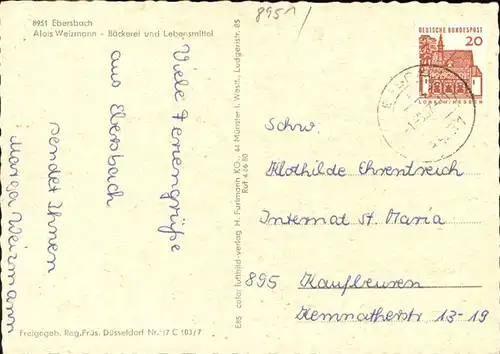 8951 Ebersbach
Alois Weizmann - Bäckerei und Lebensmittel
8951/
Viele Feriengrüße
aus Ebersbach
sendet Ihnen
Marga Weizmann
E85 color luftbild-verlag H. Fuhrmann KG., 44 Münster i. Westf., Ludgeristr. 85
Ruf 4 66 80
DEUTSCHE BUNDESPOST
20
LORSCH/HESSEN
Schw.
Klothilde Ehrentreich
Internat St. Maria
895 Kaufbeuren
Kemnatherstr 13-19
Freigegeb. Reg.Präs. Düsseldorf Nr. 17 C 103/7